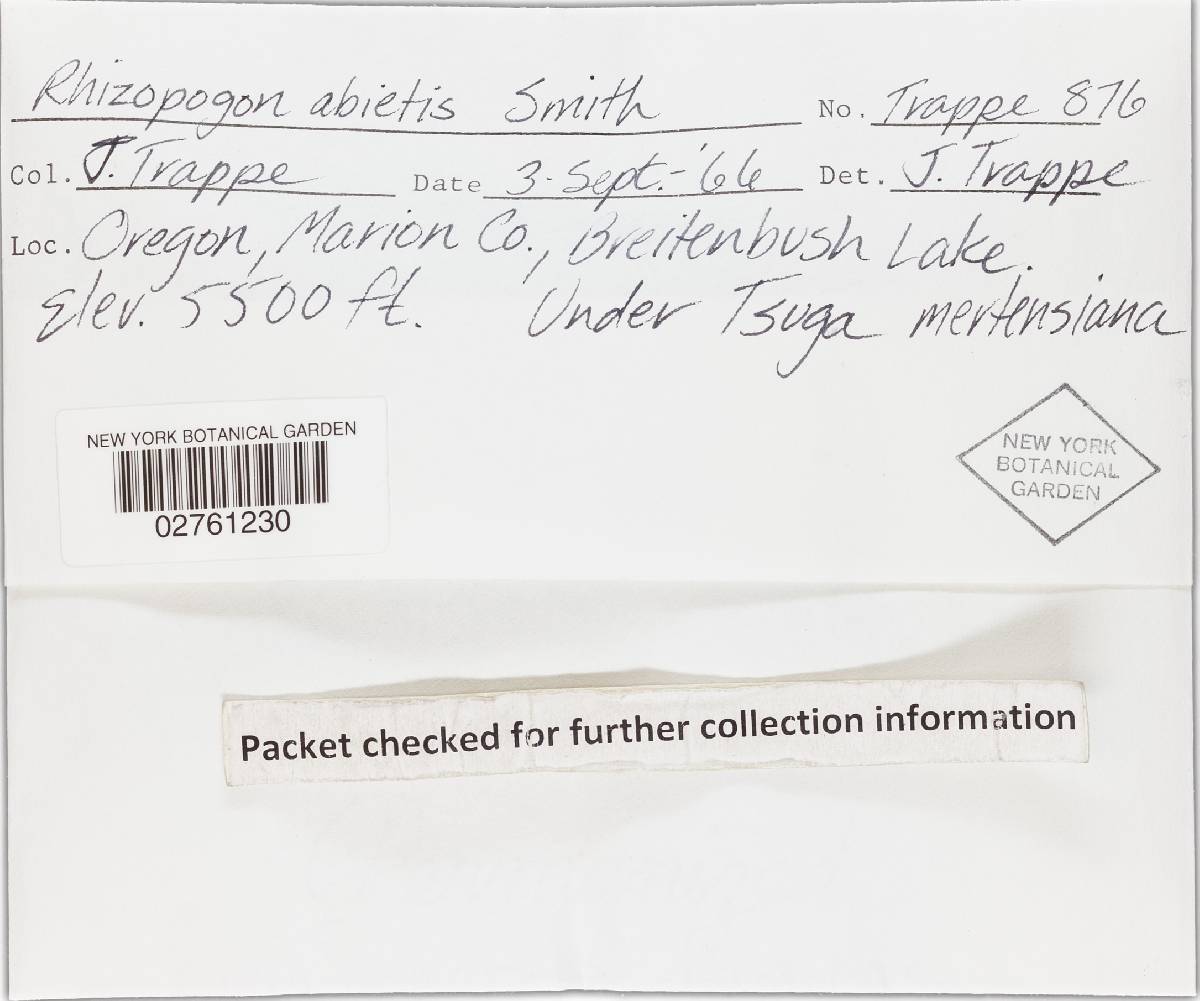 Rhizopogon abietis Smith No. Trappe 876
Col. J. Trappe Date 3-Sept.-'66 Det. J. Trappe
Loc. Oregon, Marion Co., Breitenbush Lake.
Elev. 5500 ft. Under Tsuga mertensiana
NEW YORK BOTANICAL GARDEN
02761230
NEW YORK
BOTANICAL
GARDEN
Packet checked for further collection information